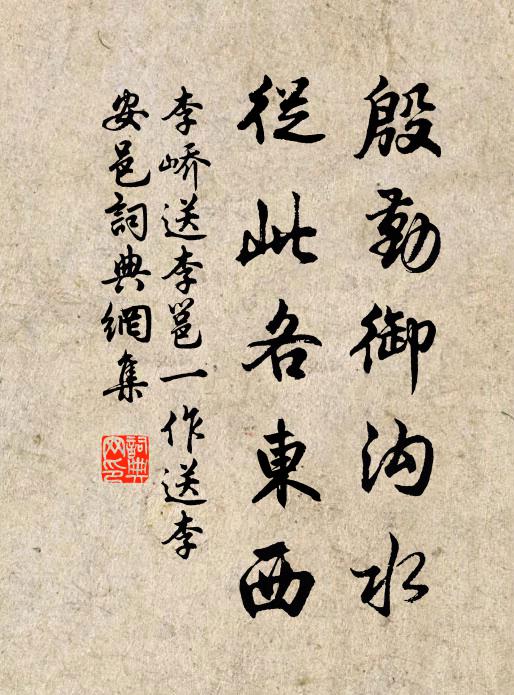 殷勤御沟水
從此各東西
李嶠送李邕一作送李
安邑詞典網集
詞典網印